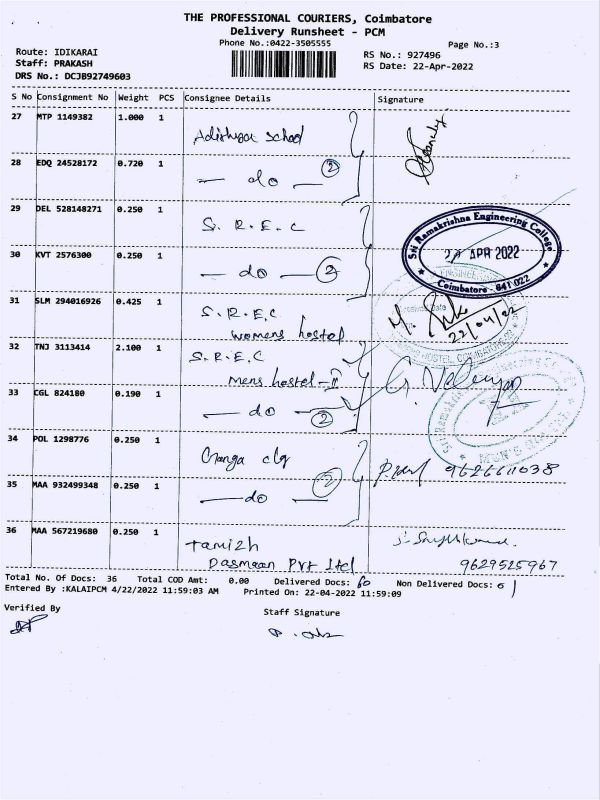 THE PROFESSIONAL COURIERS, Coimbatore
Delivery Runsheet - PCM
Phone No.:0422-3505555
Page No.:3
Route: IDIKARAI
Staff: PRAKASH
DRS No.: DCJB92749603
RS No.: 927496
RS Date: 22-Apr-2022
S No Consignment No Weight PCS Consignee Details Signature
27 MTP 1149382 1.000 1
School
28 EDQ 24528172 0.720 1
— do — 2
29 DEL 528148271 0.250 1
S. R. E. C
30 KVT 2576300 0.250 1
— do — 2
Sri Ramakrishna Engineering College
APR 2022
Coimbatore - 641 022
31 SLM 294016926 0.425 1
S. R. E. C
womens hostel
22/04/22
32 TNJ 3113414 2.100 1
S. R. E. C
mens hostel - II
33 CGL 824180 0.190 1
— do — 2
34 POL 1298776 0.250 1
Ganga clg
35 MAA 932499348 0.250 1
— do — 2
36 MAA 567219680 0.250 1
Tamizh
Dasmaan Pvt Ltd
9629525967
Total No. Of Docs: 36 Total COD Amt: 0.00 Delivered Docs: Non Delivered Docs:
Entered By :KALAIPCM 4/22/2022 11:59:03 AM Printed On: 22-04-2022 11:59:09
Verified By
Staff Signature